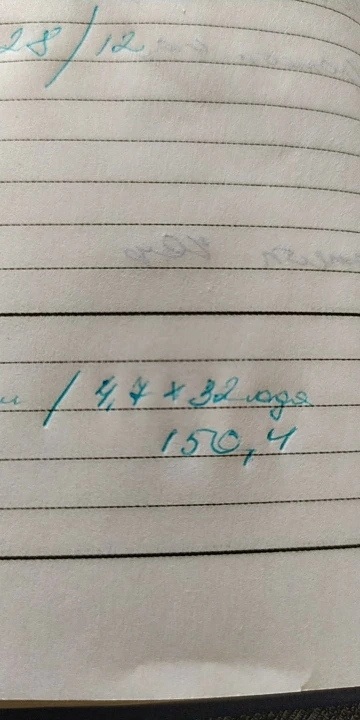 28/12
/ 4,7 x 32 года
150,4